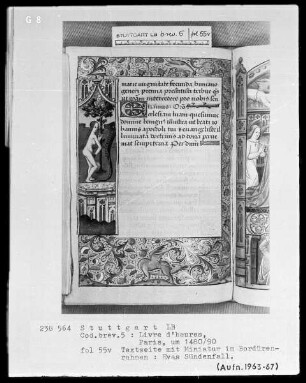 STUTTGART LB brev. 5 fol 55v
marie virginitate fecunda humano
generi premia prestitisti tribue q̄s
ut ipsam intercedere pro nobis sen
tiamus
Ecclesiam tuam quesumus
domine benignus illustra ut beati io
hannis apostoli tui et euangeliste il
luminata doctrinis ad dona perue
niat sempiterna Per dn̄m
238 564 Stuttgart LB
Cod.brev.5 : Livre d'heures,
Paris, um 1480/90
fol 55v Textseite mit Miniatur im Bordüren-
rahmen : Evas Sündenfall.
(Aufn. 1963-67)